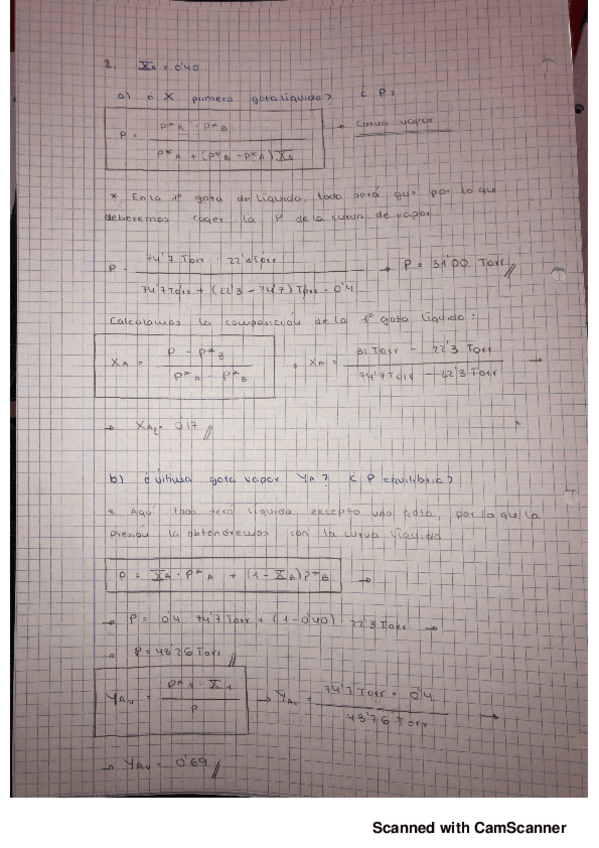 2. X̄A = 0'40
a) ¿ X primera gota líquido? ¿ P?
P = P*A · P*B / P*A + (P*B - P*A) X̄A → curva vapor
* En la 1ª gota de líquido, todo será gas por lo que
deberemos coger la P de la curva de vapor
P = 74'7 Torr · 22'3 Torr / 74'7 Torr + (22'3 - 74'7) Torr · 0'4 → P = 31'00 Torr //
Calculamos la composición de la 1ª gota líquido:
XA = P - P*B / P*A - P*B , XA = 31 Torr - 22'3 Torr / 74'7 Torr - 22'3 Torr →
→ XAL = 0'17 //
b) ¿última gota vapor YA? ¿ P equilibrio?
* Aquí todo será líquido excepto una gota, por lo que la
presión la obtendremos con la curva líquido
P = X̄A · P*A + (1 - X̄A) P*B →
→ P = 0'4 · 74'7 Torr + (1 - 0'40) · 22'3 Torr →
P = 43'26 Torr //
YAv = P*A · X̄A / P → YAv = 74'7 Torr · 0'4 / 43'26 Torr →
→ YAv = 0'69 //
Scanned with CamScanner